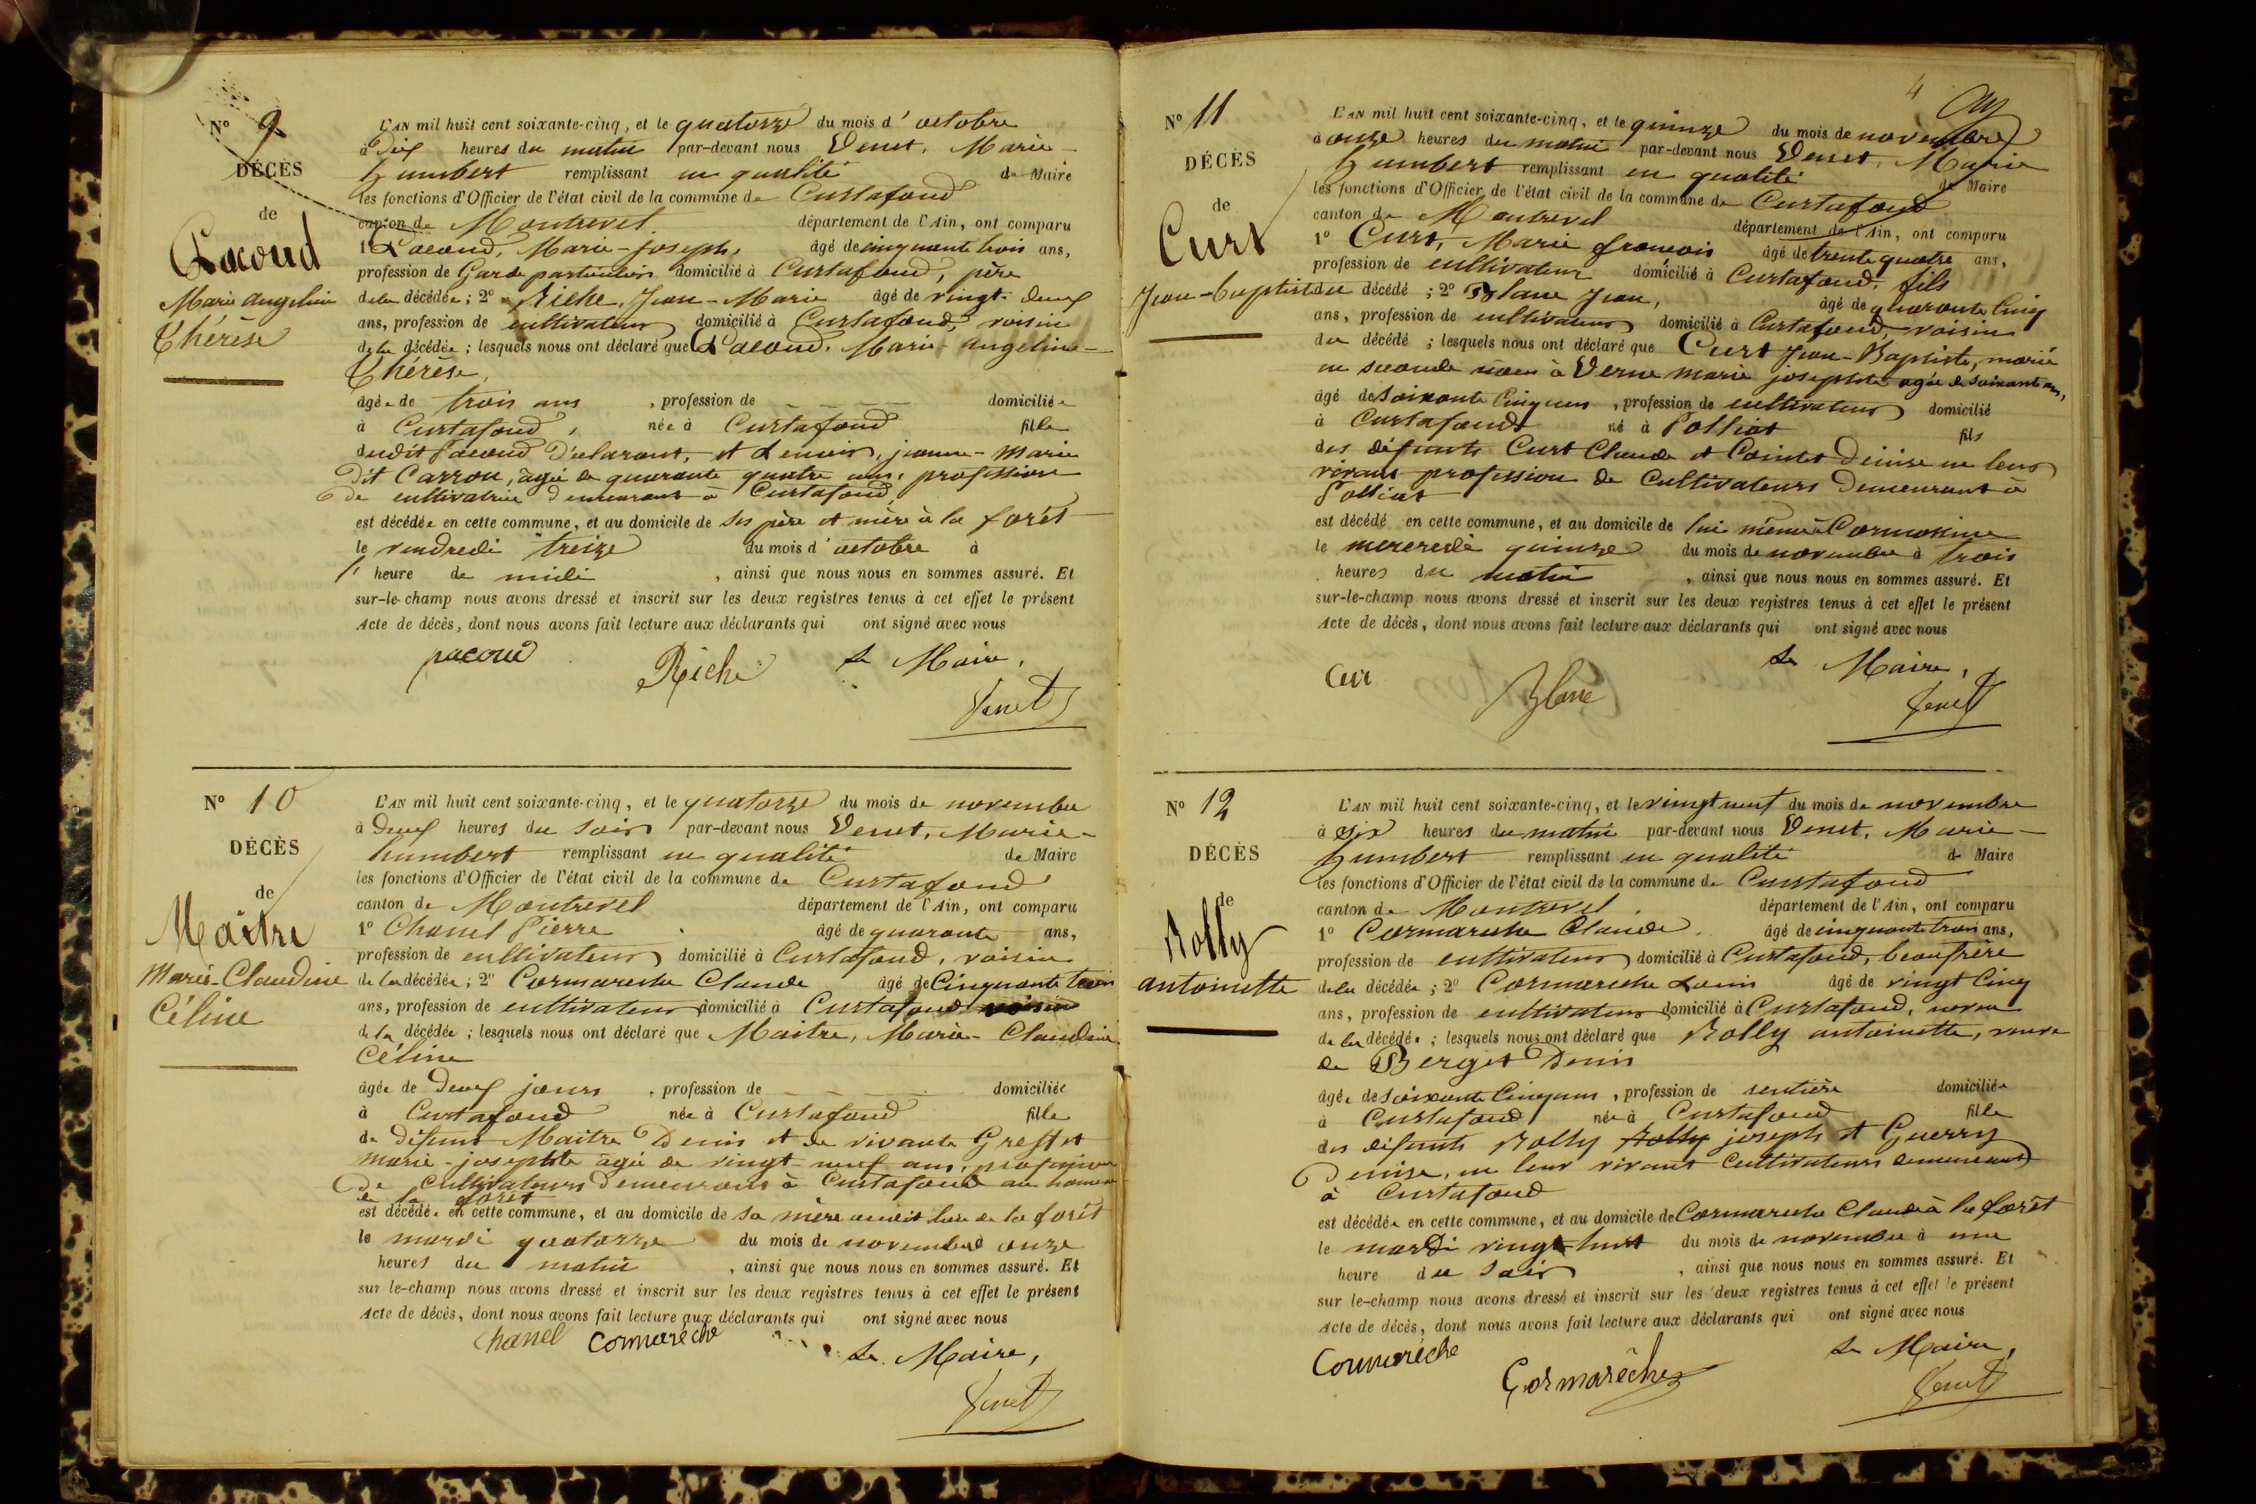 N° 9
DÉCÈS
de
Lacoud
Marie Angeline
Thérèse
L'AN mil huit cent soixante-cinq, et le quatorze du mois d'octobre
à dix heures du matin par-devant nous Venet, Marie-
humbert remplissant en qualité de Maire
les fonctions d'Officier de l'état civil de la commune de Curtafond
canton de Montrevel département de l'Ain, ont comparu
1° Lacoud, Marie-joseph, âgé de cinquante trois ans,
profession de Garde particulier domicilié à Curtafond, père
de la décédée ; 2° Riche, Jean-Marie âgé de vingt-deux
ans, profession de cultivateur domicilié à Curtafond, voisin
de la décédée ; lesquels nous ont déclaré que Lacoud, Marie-Angeline-
Thérèse,
âgée de trois ans, profession de domiciliée
à Curtafond, née à Curtafond fille
dudit Lacoud Déclarant, et jeanne-Marie
dit Carron, âgée de quarante quatre ans, profession
de cultivatrice demeurant à Curtafond
est décédée en cette commune, et au domicile de ses père et mère à la forêt
le vendredi treize du mois d'octobre à
1 heure de midi, ainsi que nous nous en sommes assuré. Et
sur-le-champ nous avons dressé et inscrit sur les deux registres tenus à cet effet le présent
Acte de décès, dont nous avons fait lecture aux déclarants qui ont signé avec nous
Lacoud Riche Le Maire,
Venet
N° 10
DÉCÈS
de
Maître
Marie-Claudine
Céline
L'AN mil huit cent soixante-cinq, et le quatorze du mois de novembre
à deux heures du soir par-devant nous Venet, Marie-
humbert remplissant en qualité de Maire
les fonctions d'Officier de l'état civil de la commune de Curtafond
canton de Montrevel département de l'Ain, ont comparu
1° Chanel Pierre âgé de quarante ans,
profession de cultivateur domicilié à Curtafond, voisin
de la décédée ; 2° Cormareche Claude âgé de Cinquante trois
ans, profession de cultivateur domicilié à Curtafond voisin
de la décédée ; lesquels nous ont déclaré que Maitre, Marie-Claudine
Céline
âgée de deux jours, profession de domiciliée
à Curtafond née à Curtafond fille
de défunt Maitre Denis et de vivante Greffet
marie-josephte âgée de vingt-neuf ans, profession
de cultivateurs demeurant à Curtafond au hameau
de la forêt
est décédée en cette commune, et au domicile de sa mère audit lieu de la forêt
le mardi quatorze du mois de novembre à onze
heures du matin, ainsi que nous nous en sommes assuré. Et
sur le-champ nous avons dressé et inscrit sur les deux registres tenus à cet effet le présent
Acte de décès, dont nous avons fait lecture aux déclarants qui ont signé avec nous
Chanel Cormarèche
Le Maire,
Venet
4
N° 11
DÉCÈS
de
Curt
Jean-baptiste
L'AN mil huit cent soixante-cinq, et le quinze du mois de novembre
à onze heures du matin par-devant nous Venet, Marie
humbert remplissant en qualité de Maire
les fonctions d'Officier de l'état civil de la commune de Curtafond
canton de Montrevel département de l'Ain, ont comparu
1° Curt, Marie françois âgé de trente quatre ans,
profession de cultivateur domicilié à Curtafond, fils
du décédé ; 2° Blanc Jean, âgé de quarante Cinq
ans, profession de cultivateur domicilié à Curtafond, voisin
du décédé ; lesquels nous ont déclaré que Curt Jean-Baptiste, marié
en seconde noces à Verne marie josephte agée de soixante ans,
âgé de Soixante Cinq ans, profession de cultivateur domicilié
à Curtafond né à Polliat fils
des défunts Curt Claude et Cointet Denise en leurs
vivants profession de Cultivateurs demeurant à
Polliat
est décédé en cette commune, et au domicile de lui même à Cormosine
le mercredi quinze du mois de novembre à trois
heures du matin, ainsi que nous nous en sommes assuré. Et
sur-le-champ nous avons dressé et inscrit sur les deux registres tenus à cet effet le présent
Acte de décès, dont nous avons fait lecture aux déclarants qui ont signé avec nous
Cur Blanc Le Maire,
Venet
N° 12
DÉCÈS
de
Rolly
antoinette
L'AN mil huit cent soixante-cinq, et le vingt neuf du mois de novembre
à dix heures du matin par-devant nous Venet, Marie-
humbert remplissant en qualité de Maire
les fonctions d'Officier de l'état civil de la commune de Curtafond
canton de Montrevel département de l'Ain, ont comparu
1° Cormareche Claude âgé de cinquante trois ans,
profession de cultivateur domicilié à Curtafond, beaufrère
de la décédée ; 2° Cormareche Louis âgé de vingt Cinq
ans, profession de cultivateur domicilié à Curtafond, neveu
de la décédée ; lesquels nous ont déclaré que Rolly antoinette, veuve
de Berger Denis
âgée de soixante Cinq ans, profession de rentière domiciliée
à Curtafond née à Curtafond fille
des défunts Rolly Rolly joseph et Guerry
Denise, en leur vivant Cultivateurs demeurant
à Curtafond
est décédée en cette commune, et au domicile de Cormareche Claude à la forêt
le mardi vingt-huit du mois de novembre à une
heure du soir, ainsi que nous nous en sommes assuré. Et
sur le-champ nous avons dressé et inscrit sur les deux registres tenus à cet effet le présent
Acte de décès, dont nous avons fait lecture aux déclarants qui ont signé avec nous
Cormarèche Cormarèche Le Maire,
Venet